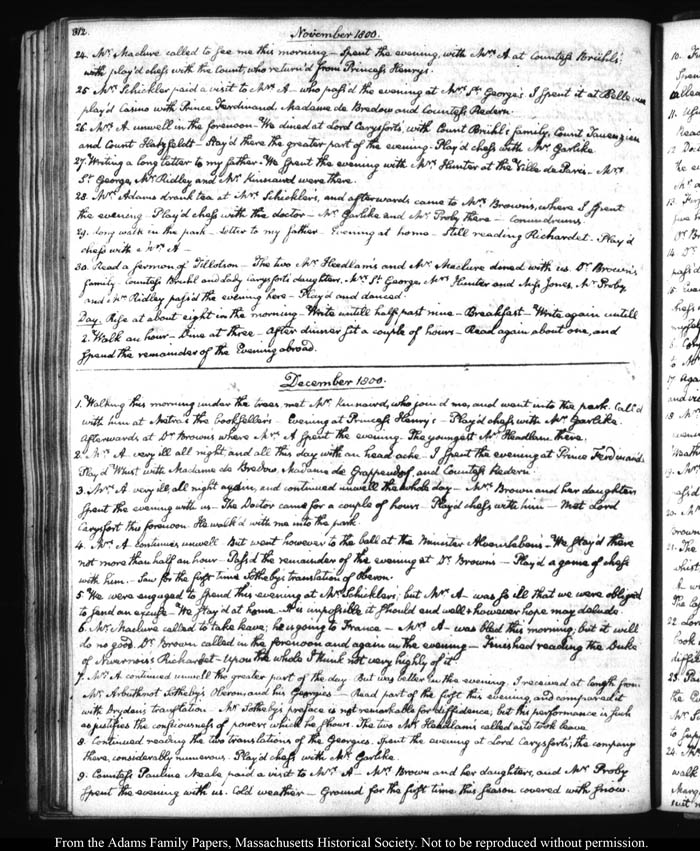 312.
November 1800.
24. Mr. Maclure called to see me this morning — Spent the evening, with Mrs. A at Countess Brühl's;
with play'd chess with the Count, who return'd from Princess Henry's.
25 Mrs. Schickler paid a visit to Mrs. A — who pass'd the evening at Mrs. St. George's. I spent it at Bellevue
play'd Casino with Prince Ferdinand Madame de Bredow and Countess Redern.
26. Mrs. A. unwell in the forenoon — We dined at Lord Carysfort's, with Count Brühl's family, Count Tauenzien
and Count Hatzfeldt — Stay'd there the greater part of the evening. Play'd chess with Mr. Garlike.
27. Writing a long letter to my father — We spent the evening with Mrs. Hunter at the Ville de Paris — Mrs.
St. George, Mr. Ridley and Mr. Kinnaird were there.
28. Mrs. Adams drank tea at Mrs. Schickler's, and afterwards came to Mrs. Brown's, where I spent
the evening — Play'd chess with the doctor — Mr. Garlike and Mr. Proby there — Conundrums.
29. Long walk in the park — Letter to my father — Evening at home — Still reading Richardet. Play'd
chess with Mrs. A —
30. Read a sermon of Tillotson — The two Mr. Headlam's and Mr. Maclure dined with us. Dr. Brown's
family — Countess Bruhl and Lady Carysfort's daughters, Mrs. St. George, Mrs. Hunter and Miss Jones, Mr. Proby
and Mr. Ridley pass'd the evening here — Play'd and danced.
Day. Rise at about eight in the morning — Write untill half past nine — Breakfast — Write again untill
2. Walk an hour — Dine at three — After dinner sit a couple of hours — Read again about one, and
spend the remainder of the Evening abroad.
December 1800.
1. Walking this morning under the trees met Mr. Kinnaird, who join'd me, and went into the park. Call'd
with him at Metra's the bookseller's — Evening at Princess Henry's — Play'd chess with Mr. Garlike.
Afterwards at Dr. Browns where Mrs. A spent the evening. The youngest Mr. Headlam there.
2. Mrs. A very ill all night, and all this day with an head ache — I spent the evening at Prince Ferdinand's
Play'd Whist with Madame de Bredow, Madame de Grappendorf, and Countess Redern.
3. Mrs. A very ill, all night again, and continued unwell the whole day — Mrs. Brown and her daughters
spent the evening with us. The Doctor came for a couple of hours — Play'd chess with him — Met Lord
Carysfort this forenoon. He walk'd with me into the park.
4. Mrs. A. continues unwell. But went however to the ball at the Minister Alvensleben's. We stay'd there
not more than half an hour — Pass'd the remainder of the evening at Dr. Browns — Play'd a game of chess
with him. — Saw for the first time Sotheby's translation of Oberon.
5. We were engaged to spend this evening at Mr. Schickler's; but Mrs. A — was so ill that we were obliged
to send an excuse — We stay'd at home — It is impossible it should end well & however hope may delude.
6. Mr. Maclure called to take leave; he is going to France — Mrs. A — was bled this morning, but it will
do no good. Dr. Brown called in the forenoon and again in the evening — Finished reading the Duke
of Nivernois's Richardet — Upon the whole I think not very highly of it.
7. Mrs. A continued unwell the greater part of the day. But was better in the evening. I received at length from
Mr. Arbuthnot Sotheby's Oberon, and his Georgics — Read part of the first this evening, and compared it
with Dryden's translation — Mr. Sotheby's preface is not remarkable for diffidence, but the performance is such
as justifies the consciousness of powers, which he shows. The two Mr. Headlams called and took leave.
8. Continued reading the two translations of the Georgics. Spent the evening at Lord Carysfort's; the company
there, considerably numerous — Play'd chess with Mr. Garlike.
9. Countess Pauline Neale paid a visit to Mrs. A — Mrs. Brown and her daughters, and Mr. Proby
spent the evening with us. Cold weather — Ground for the first time this season covered with snow.
From the Adams Family Papers, Massachusetts Historical Society. Not to be reproduced without permission.